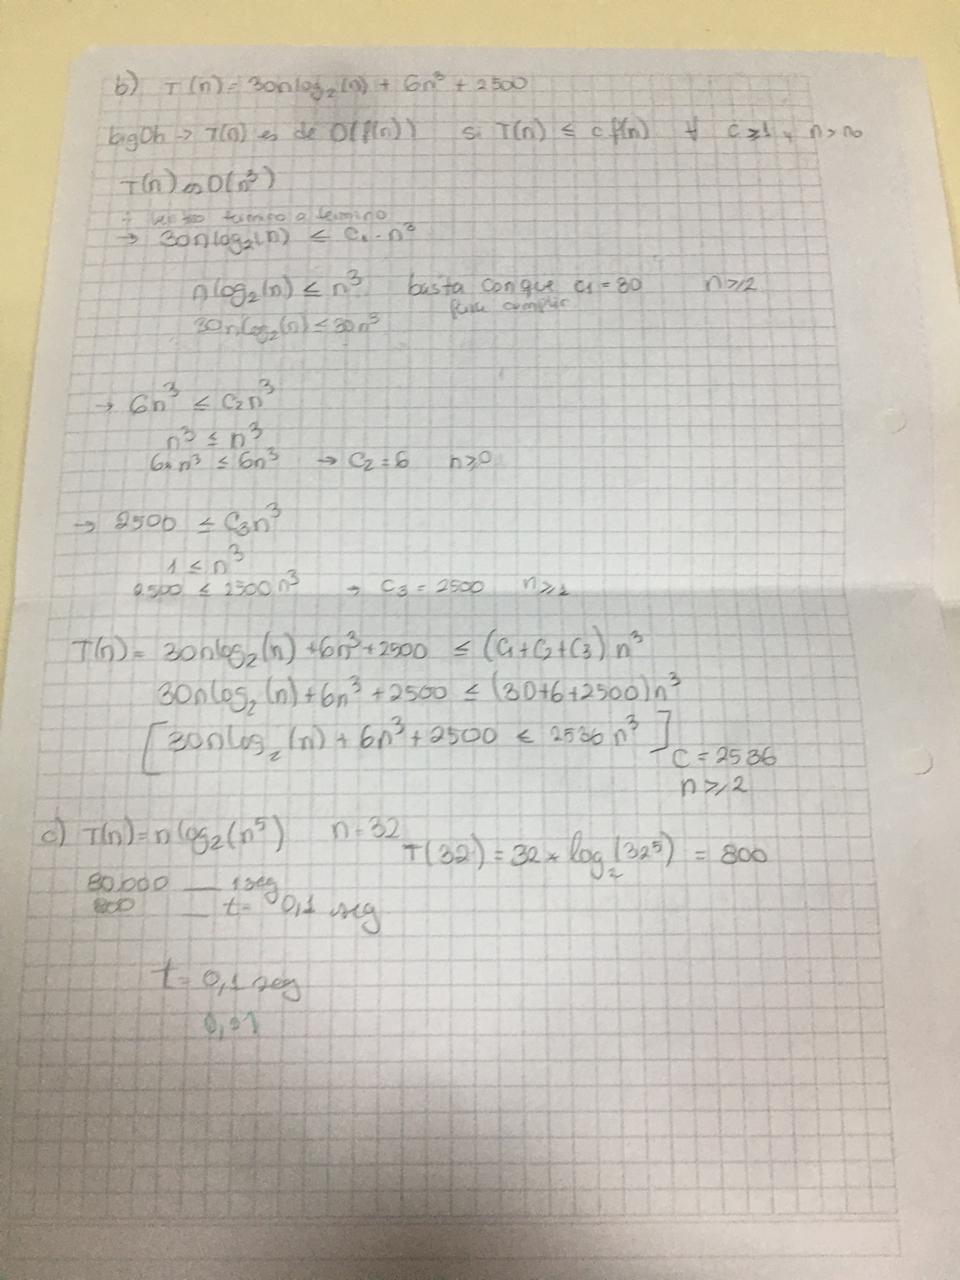 b) T(n) = 30nlog₂(n) + 6n³ + 2500
bigOh → T(n) es de O(f(n)) si T(n) ≤ c f(n) ∀ c≥1 y n>n₀
T(n) es O(n³)
termino a termino
→ 30nlog₂(n) ≤ c₁·n³
nlog₂(n) ≤ n³ basta con que c₁=30 n≥2
para cumplir
30nlog₂(n) ≤ 30n³
→ 6n³ ≤ c₂n³
n³ ≤ n³
6n³ ≤ 6n³ → c₂=6 n≥0
→ 2500 ≤ c₃n³
1 ≤ n³
2500 ≤ 2500n³ → c₃ = 2500 n≥1
T(n) = 30nlog₂(n) + 6n³ + 2500 ≤ (c₁+c₂+c₃) n³
30nlog₂(n) + 6n³ + 2500 ≤ (30+6+2500)n³
[30nlog₂(n) + 6n³ + 2500 ≤ 2536 n³] c = 2536
n≥2
c) T(n) = n log₂(n⁵) n=32 T(32) = 32 × log₂(32⁵) = 800
80.000 __ 1seg
800 __ t= 0,1 seg
t = 0,1 seg
0,01